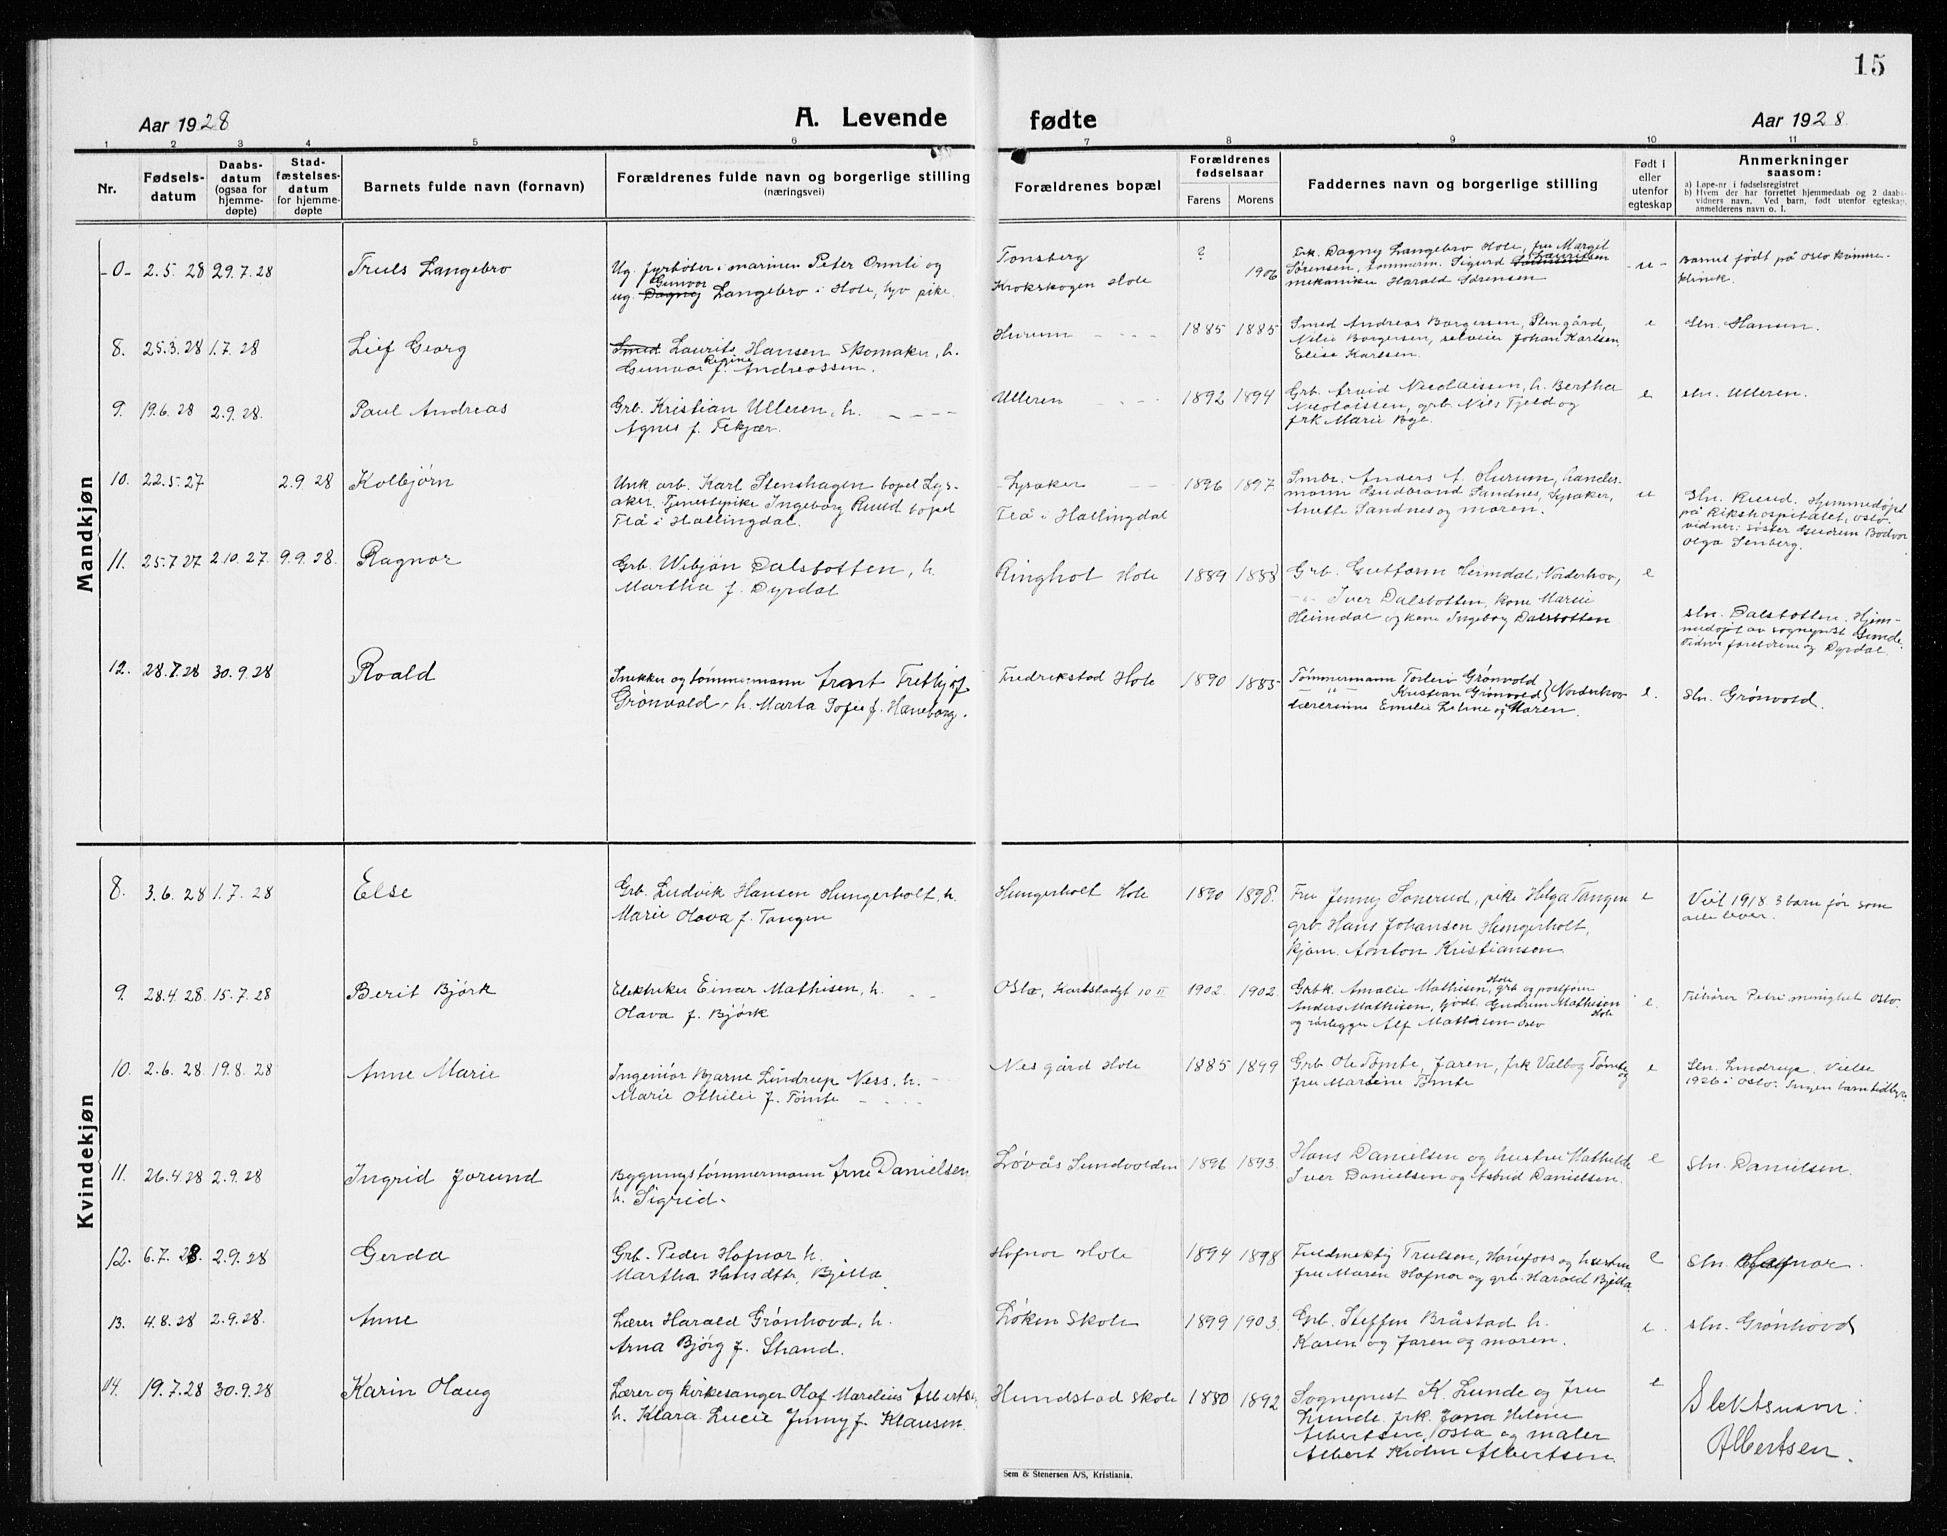 15
Aar 1928 A. Levende fødte Aar 1928
1 2 3 4 5 6 7 8 9 10 11
Nr.
Fødsels-
datum
Daabs-
datum
(ogsaa for
hjemme-
døpte)
Stad-
fæstelses-
datum
for hjemme-
døpte
Barnets fulde navn (fornavn)
Forældrenes fulde navn og borgerlige stilling
(næringsvei)
Forældrenes bopæl
Forældrenes
fødselsaar
Farens Morens
Faddernes navn og borgerlige stilling
Født i
eller
utenfor
egteskap
Anmerkninger
saasom:
a) Løpe-nr i fødselsregistret
b) Hvem der har forrettet hjemmedaab og 2 daabs-
vidners navn. Ved barn, født utenfor egteskap,
anmelderens navn o. l.
Mandkjøn
-0- 2.5.28 29.7.28 Truls Langebro
Ug. fyrbøter i marinen Peter Ormli og
Gunvor
ug. Dagny Langebro i Hole, hjv pike.
Tønsberg
Krokskogen Hole
? 1906
Frk. Dagny Langebro Hole, fru Margit
Sørensen, tømmerm. Sigurd Lauritsen
mekaniker Harald Sørensen
-u-
Barnet født på Oslo kvinne-
klinik.
8. 25.3.28 1.7.28 Leif Georg
Smed Laurits Hansen Skomaker, h.
Regine
Gunvor f. Andreassen.
Hurum 1885 1885
Smed Andreas Borgersen, Stengård,
Nelie Borgersen, selveier Johan Karlsen
Elise Karlsen.
e
Sln. Hansen.
9. 19.6.28 2.9.28. Paul Andreas
Grb. Kristian Ulleren, h.
Agnes f. Tekjær.
Ulleren 1892 1894
Grb. Arvid Nicolaissen, h. Bertha
Nicolaissen, grb. Nils Fjeld og
frk Marie Bye.
e
sln. Ulleren.
10. 22.5.27 2.9.28 Kolbjørn
Unk. arb. Karl Stenshagen bopel Lys-
aker. Tjenestepike Ingeborg Ruud bopel
Flå i Hallingdal.
Lysaker
Flå i Hallingdal
1896 1897
Smbr. Anders A. Hurum, handels-
mann Gudbrand Sandnes, Lysaker,
Anette Sandnes og moren.
u
Sln. Ruud. Hjemmedøpt
på Rikshospitalet, Oslo.
vidner: søster Gudrun Bodvor
Olga Senberg.
11. 25.7.27 2.10.27. 9.9.28. Ragnar
Grb. Wibjøn Dalsbotten, h.
Martha f. Dyrdal
Ringhol Hole 1889 1888
Grb. Guttorm Heimdal, Norderhov,
-"- Iver Dalsbotten, kone Marie
Heimdal og kone Ingeborg Dalsbotten
e
Sln. Dalsbotten. Hjem-
medøpt av sogneprest Gunde.
Vidner foreldrene og Dyrdal.
12. 28.7.28 30.9.28 Roald
Snekker og tømmermann Arnt Frethjof
Grønvold, h. Marta Sofie f. Haneborg.
Fredrikstad Hole 1890 1885
Tømmermann Torleiv Grønvold
-"- Kristian Grønvold } Norderhov
lærerinne Emilie Lehne og Moren.
e.
Sln. Grønvold.
Kvindekjøn
8. 3.6.28 1.7.28 Else
Grb. Ludvik Hansen Hungerholt, h.
Marie Olava f. Tangen
Hungerholt Hole 1890 1898.
Fru Jenny Sonerud, pike Helga Tangen
grb. Hans Johansen Hungerholt,
kjøm. Anton Kristiansen
e
Viet 1918 3 barn før som
alle lever.
9. 28.4.28. 15.7.28 Berit Bjørk
Elektriker Einar Mathisen, h.
Olava f. Bjørk
Oslo, Karlstadgt 10 II 1902. 1902.
Grbk. Amalie Mathisen Hole, grb og postfører
Anders Mathisen, Godt. Gudrun Mathisen Hole
og rørlegger Alf Mathisen Oslo
e.
Tilhører Petri menighet Oslo.
10. 2.6.28 19.8.28 Anne Marie
Ingeniør Bjarne Lindrup Ness, h.
Marie Othilie f. Tømte
Nes gård Hole 1885 1899
Grb Ole Tømte, faren, frk Valborg Tømte og
fru Martine Tømte
e
Sln. Lindrup. Viet
1926 i Oslo. Ingen barn tidligere
11. 26.4.28 2.9.28 Ingrid Jorund
Bygningstømmermann Arne Danielsen
h. Sigrid.
Løvås Sundvolden 1896 1893.
Hans Danielsen og hustru Mathilde
Iver Danielsen og Astrid Danielsen.
e
Sln. Danielsen.
12. 6.7.28. 2.9.28 Gerda
Grb. Peder Hofnor h.
Martha Hansdttr, Bjella
Hofnor Hole 1894 1898
Fuldmektig Trulsen, Hønefoss og hustru
fru Maren Hofnor og grb. Harald Bjella
e
Sln. Hofnor.
13. 4.8.28 2.9.28. Anne
Lærer Harald Grønhovd, h.
Arna Bjørg f. Strand.
Løken Skole 1899 1903.
Grb. Steffen Bråstad h.
Karen og faren og moren.
e.
sln. Grønhovd
14. 19.7.28 30.9.28 Karin Olaug
Lærer og kirkesanger Olaf Marelius Albertsen,
h. Klara Lucie Jenny f. Klausen.
Hundstad Skole 1880 1892
Sogneprest K. Lunde og fru
Lunde, frk. Jona Helene
Albertsen, Oslo og maler
Albert Krohn Albertsen.
e
Slektsnavn:
Albertsen.
Sem & Stenersen A/S, Kristiania.